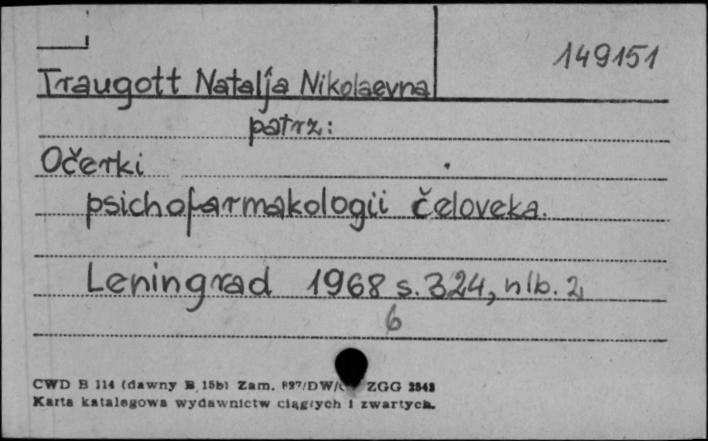 149151
Traugott Natalja Nikolaevna
patrz:
Očerki
psichofarmakologii čeloveka.
Leningrad 1968 s. 324, nlb. 2
6
CWD B 114 (dawny B 15b) Zam. 897/DW/ ZGG 2543
Karta katalogowa wydawnictw ciągłych i zwartych.